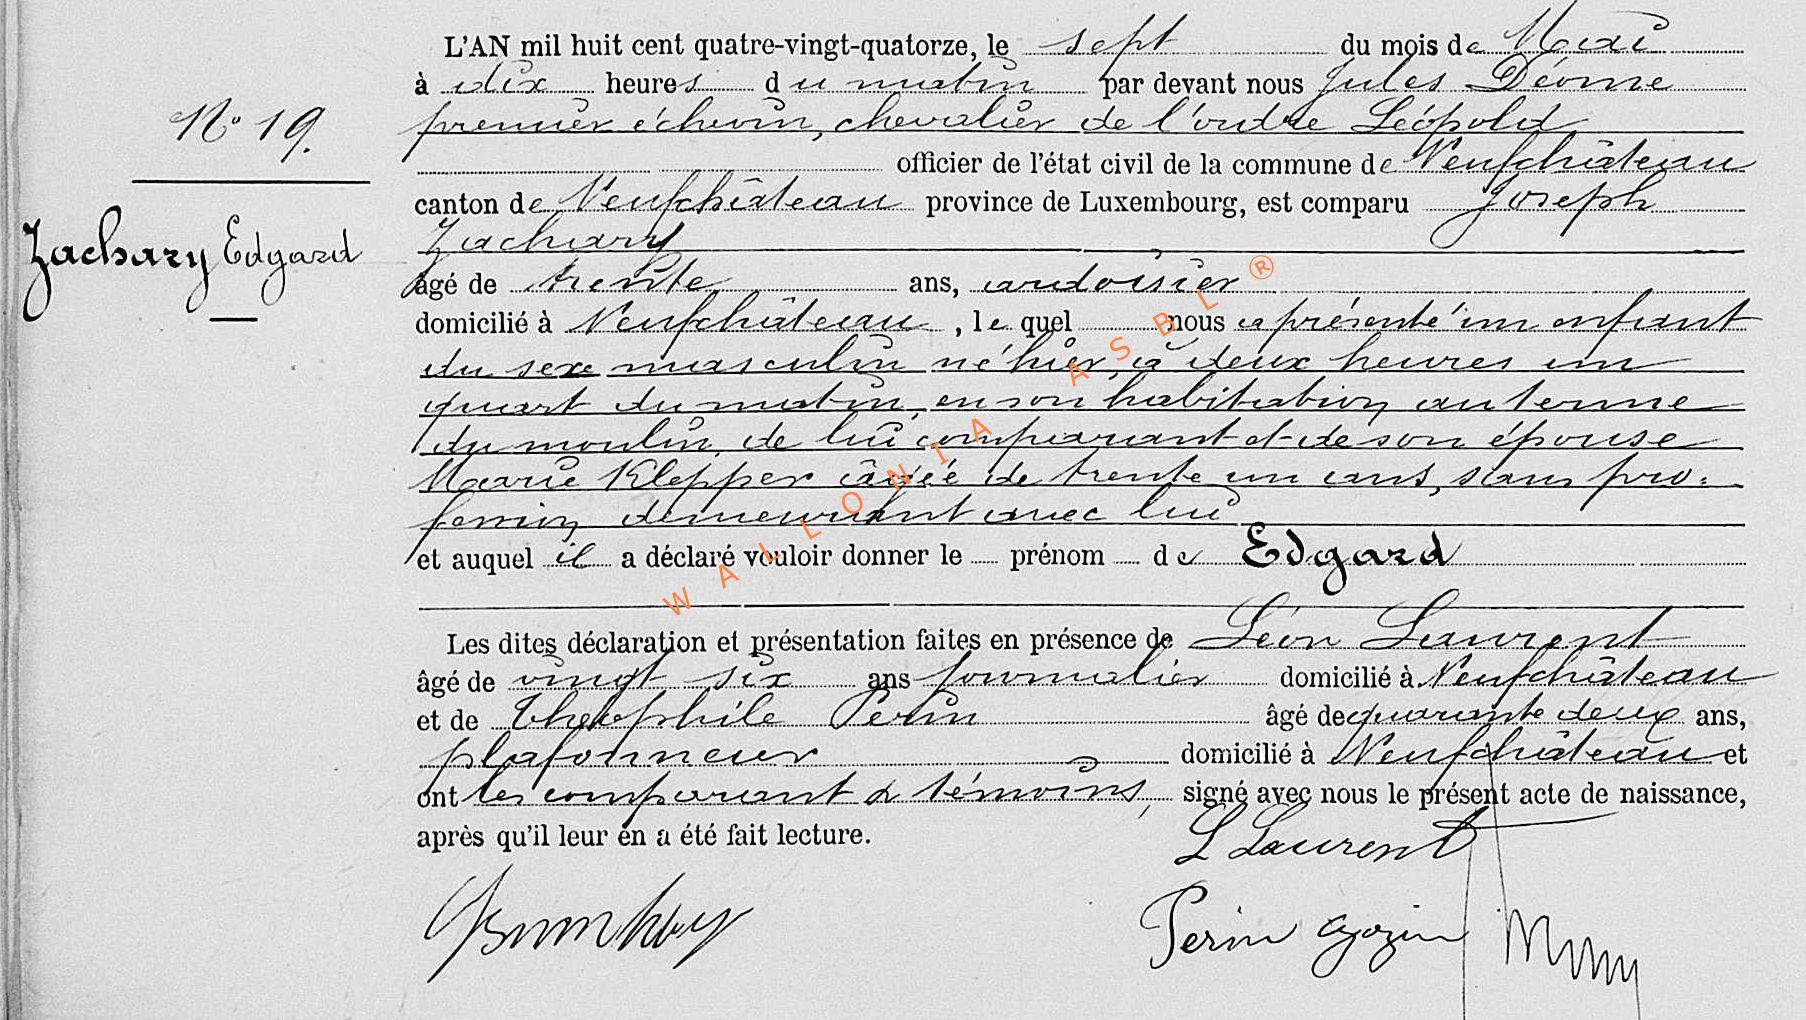 L'AN mil huit cent quatre-vingt-quatorze, le sept du mois de Mai
à dix heures du matin par devant nous Jules Déome
N° 19. premier échevin, chevalier de l'ordre Léopold
officier de l'état civil de la commune de Neufchâteau
canton de Neufchâteau province de Luxembourg, est comparu Joseph
Zachary Edgard
Zachary
âgé de trente ans, ardoisier
domicilié à Neufchâteau, lequel nous a présenté un enfant
du sexe masculin né hier, à deux heures un
quart du matin, en son habitation au terme
du moulin, de lui comparant et de son épouse
Marie Klepper âgée de trente un ans, sans pro=
fession, demeurant avec lui
et auquel il a déclaré vouloir donner le prénom de Edgard
Les dites déclaration et présentation faites en présence de Léon Laurent
âgé de vingt six ans journalier domicilié à Neufchâteau
et de Théophile Perin âgé de quarante deux ans,
plafonneur domicilié à Neufchâteau et
ont les comparant & témoins, signé avec nous le présent acte de naissance,
après qu'il leur en a été fait lecture.
L Laurent
Perin Gozin
WALLONIA ASBL ®